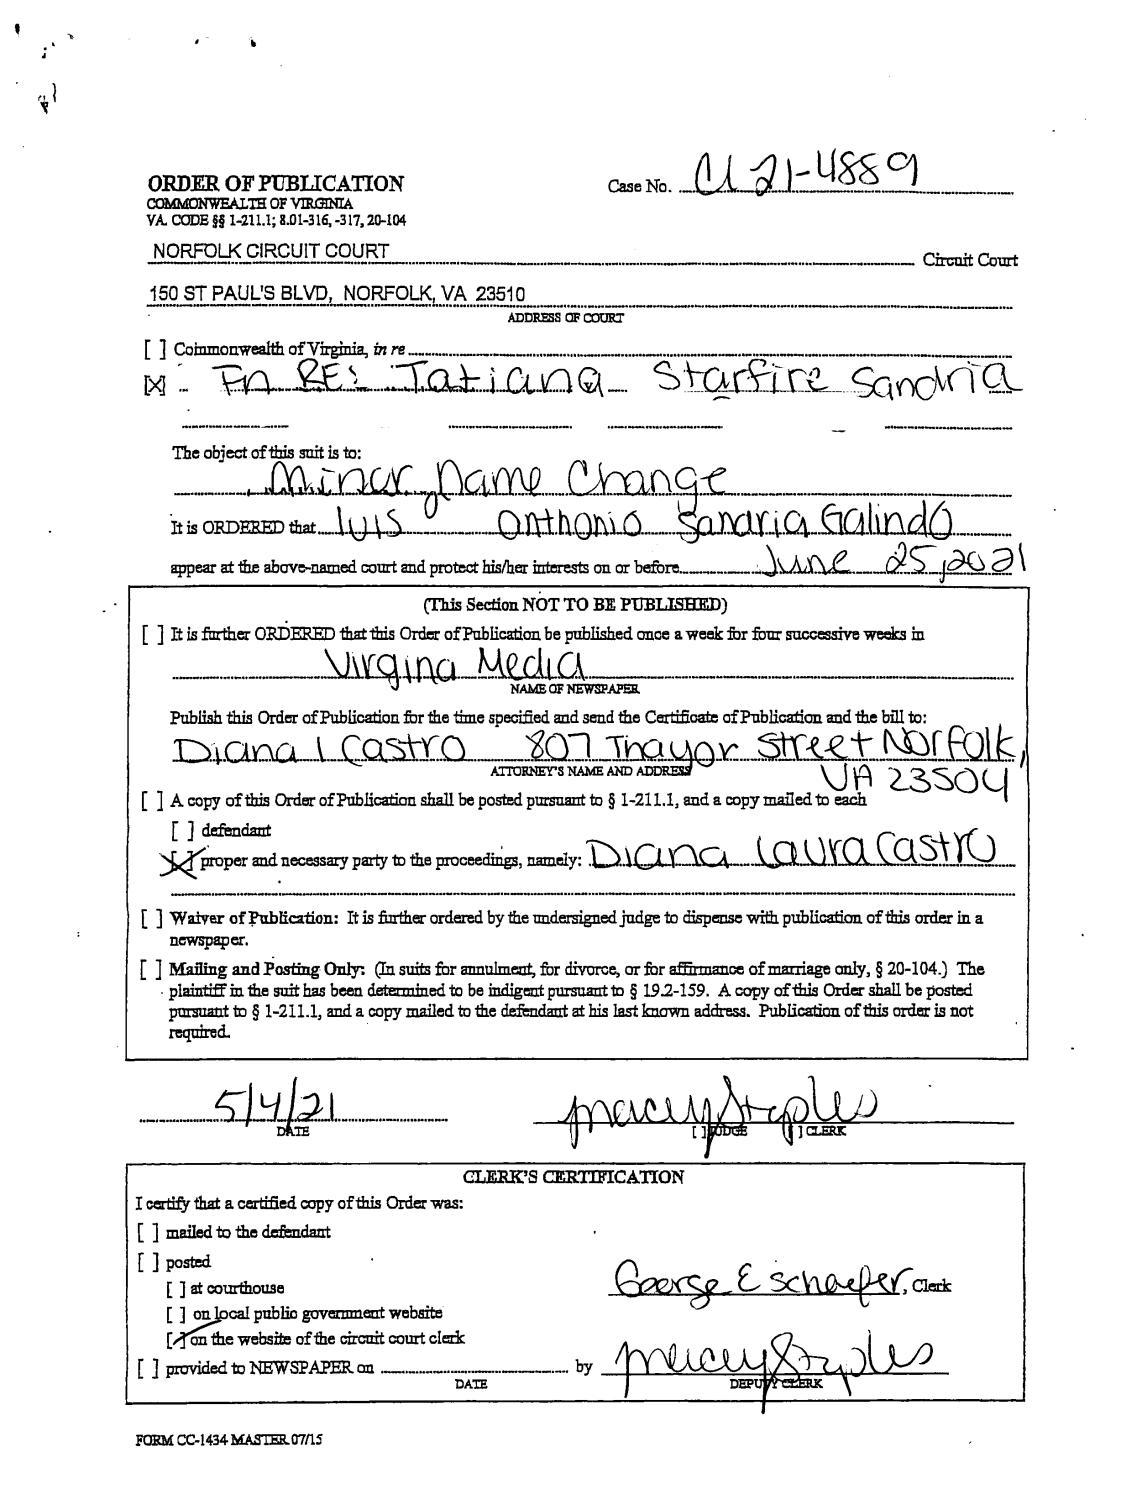 ORDER OF PUBLICATION
COMMONWEALTH OF VIRGINIA
VA. CODE §§ 1-211.1; 8.01-316, -317, 20-104
Case No. CL 21-4889
NORFOLK CIRCUIT COURT Circuit Court
150 ST PAUL'S BLVD, NORFOLK, VA 23510
ADDRESS OF COURT
[ ] Commonwealth of Virginia, in re
[X] In RE: Tatiana Starfire Sandria
The object of this suit is to:
Minor Name Change
It is ORDERED that Luis Anthonio Sanaria Galindo
appear at the above-named court and protect his/her interests on or before June 25, 2021
(This Section NOT TO BE PUBLISHED)
[ ] It is further ORDERED that this Order of Publication be published once a week for four successive weeks in
Virgina Media
NAME OF NEWSPAPER
Publish this Order of Publication for the time specified and send the Certificate of Publication and the bill to:
Diana L Castro 807 Thayor Street Norfolk,
ATTORNEY'S NAME AND ADDRESS
VA 23504
[ ] A copy of this Order of Publication shall be posted pursuant to § 1-211.1, and a copy mailed to each
[ ] defendant
[X] proper and necessary party to the proceedings, namely: Diana Laura Castro
[ ] Waiver of Publication: It is further ordered by the undersigned judge to dispense with publication of this order in a
newspaper.
[ ] Mailing and Posting Only: (In suits for annulment, for divorce, or for affirmance of marriage only, § 20-104.) The
plaintiff in the suit has been determined to be indigent pursuant to § 19.2-159. A copy of this Order shall be posted
pursuant to § 1-211.1, and a copy mailed to the defendant at his last known address. Publication of this order is not
required.
5/4/21
DATE
Mercey Staples
[ ] JUDGE [ ] CLERK
CLERK'S CERTIFICATION
I certify that a certified copy of this Order was:
[ ] mailed to the defendant
[ ] posted
[ ] at courthouse
George E Schaefer, Clerk
[ ] on local public government website
[✓] on the website of the circuit court clerk
[ ] provided to NEWSPAPER on by Mercey Staples
DATE
DEPUTY CLERK
FORM CC-1434 MASTER 07/15